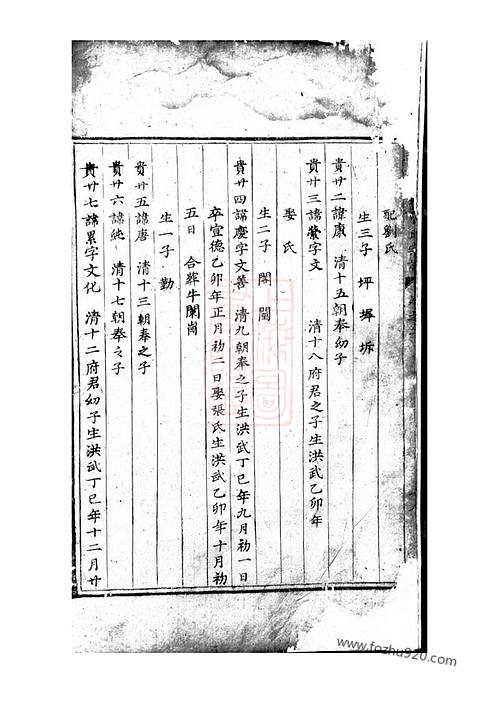 配劉氏
生三子 坪 墀 坼
貴廿二諱康 清十五朝奉幼子
貴廿三諱縈字文 清十八府君之子生洪武乙卯年
娶氏
生二子 閔 閶
貴廿四諱慶字文善 清九朝奉之子生洪武丁巳年九月初一日
卒宣德乙卯年正月初二日娶張氏生洪武乙卯年十月初
五日 合葬牛闌崗
生一子 勤
貴廿五諱唐 清十三朝奉之子
貴廿六諱純 清十七朝奉之子
貴廿七諱累字文化 清十二府君幼子生洪武丁巳年十二月廿
www.fozhu920.com